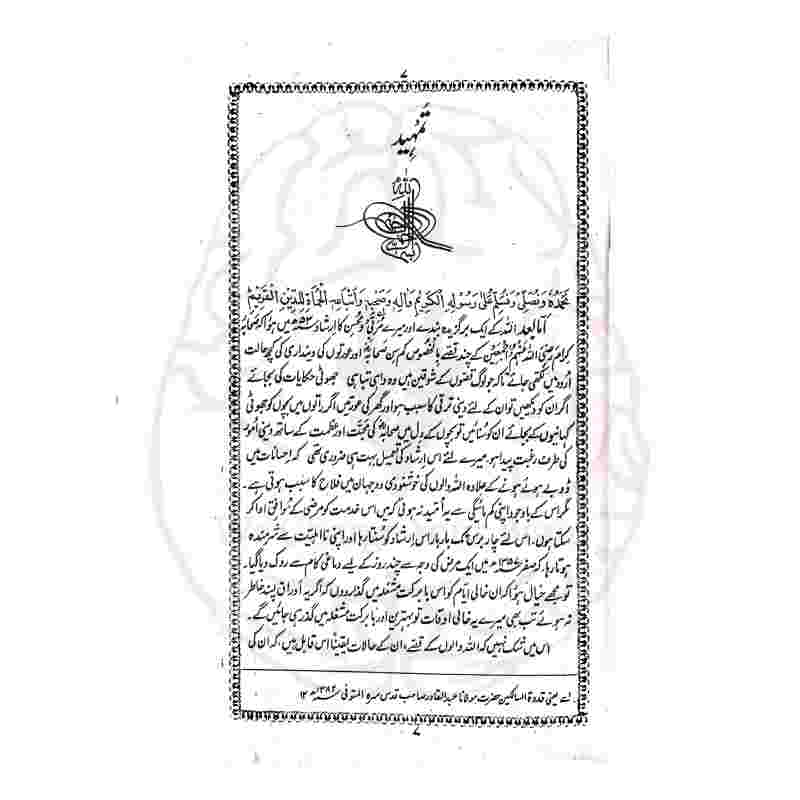 ۷
تمہید
نَحْمَدُهٗ وَنُصَلِّیْ وَنُسَلِّمُ عَلٰی رَسُوْلِهِ الْكَرِیْمِ وَاٰلِهٖ وَصَحْبِهٖ وَاَتْبَاعِهِ الْحُمَاةِ لِلدِّیْنِ الْقَوِیْمِ
اما بعد اللہ کے ایک برگزیدہ بندے اور میرے مُربّی و محسن کا ارشاد ۱۳۵۳ھ میں ہوا کہ صحابہ
کرام رَضِیَ اللہُ عَنْہُمْ اَجْمَعِیْن کے چند قصے بالخصوص کم سِن صحابہؓ اور عورتوں کی دینداری کی کچھ حالت
اُردو میں لکھی جائے تاکہ جو لوگ قصّوں کے شوقین ہیں وہ واہی تباہی جھوٹی حکایات کی بجائے
اگر ان کو دیکھیں تو ان کے لئے دینی ترقی کا سبب ہو اور گھر کی عورتیں اگر راتوں میں بچوں کو جھوٹی
کہانیوں کے بجائے ان کو سُنائیں تو بچوں کے دِل میں صحابہؓ کی محبّت اور عظمت کے ساتھ دینی اُمور
کی طرف رغبت پیدا ہو میرے لئے اس ارشاد کی تعمیل بہت ہی ضروری تھی کہ احسانات میں
ڈوبے ہوئے ہونے کے علاوہ اللہ والوں کی خوشنودی دو جہان میں فلاح کا سبب ہوتی ہے۔
مگر اس کے باوجود اپنی کم مائیگی سے یہ اُمّید نہ ہوئی کہ میں اس خدمت کو مرضی کے مُوافق ادا کر
سکتا ہوں۔ اس لئے چار برس تک بار بار اس ارشاد کو سُنتا رہا اور اپنی نااہلیت سے شرمندہ
ہوتا رہا، کہ صفر ۱۳۵۷ھ میں ایک مرض کی وجہ سے چند روز کے لیے دماغی کام سے روک دیا گیا۔
تو مجھے خیال ہوا کہ ان خالی ایّام کو اس بابرکت مشغلہ میں گذار دوں کہ اگر یہ اَوراق پسندِ خاطر
نہ ہوئے تب بھی میرے یہ خالی اوقات تو بہترین اور بابرکت مشغلہ میں گذر ہی جائیں گے۔
اس میں شک نہیں کہ اللہ والوں کے قصّے، ان کے حالات یقیناً اس قابل ہیں، کہ ان کی
لے یعنی قدوة السالکین حضرت مولانا عبدالقادر صاحب قدس سرہ المتوفی ۱۳۸۲ھ ۱۲
۷